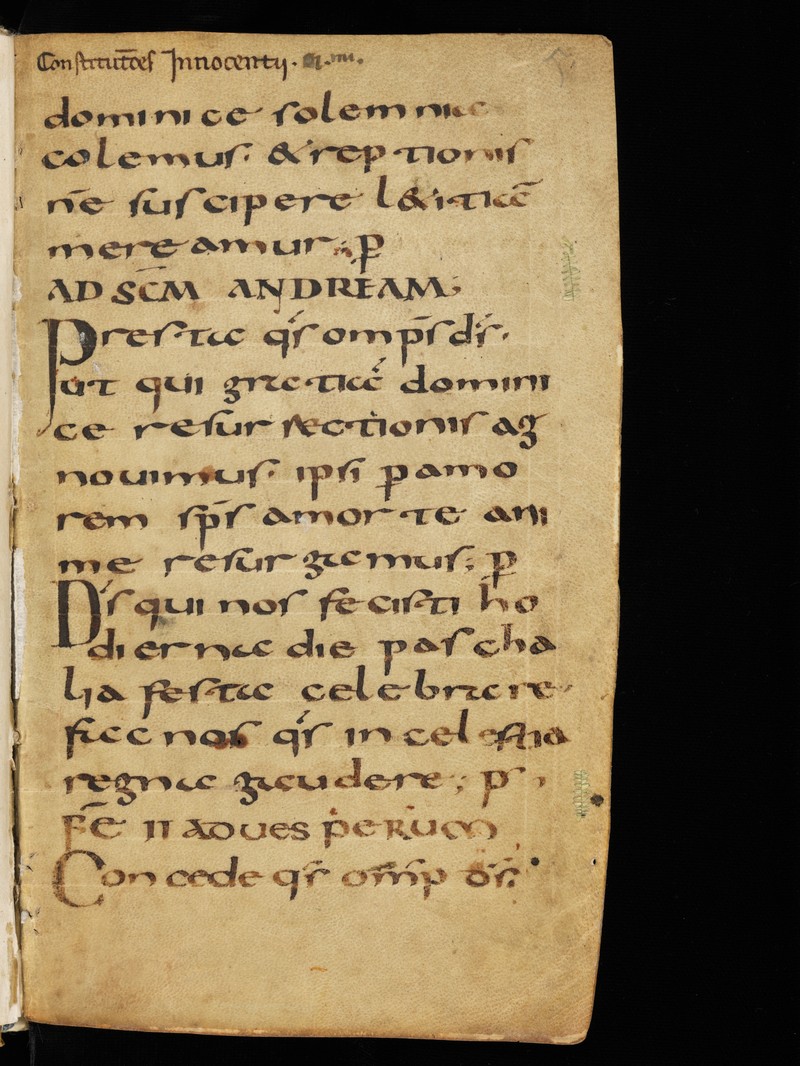 Constitutōes Innocentij.
dominice solemnia
colemus. & reptionis
nr̄e suscipere l&itiā
mereamur; ꝑ
AD SC̄M ANDREAM;
Presta qs̄ omps̄ ds̄.
ut qui gratiā domini
ce resurrectionis ag
nouimus. ipsi ꝑ amo
rem sps̄ a morte ani
me resurgamus; ꝑ
Ds̄ qui nos fecisti ho
dierna die pascha
lia festa celebrare
fac nos qs̄ in celestia
regna gaudere; ꝑ
FE II ad ues perum
Concede qs̄ omp̄ ds̄.